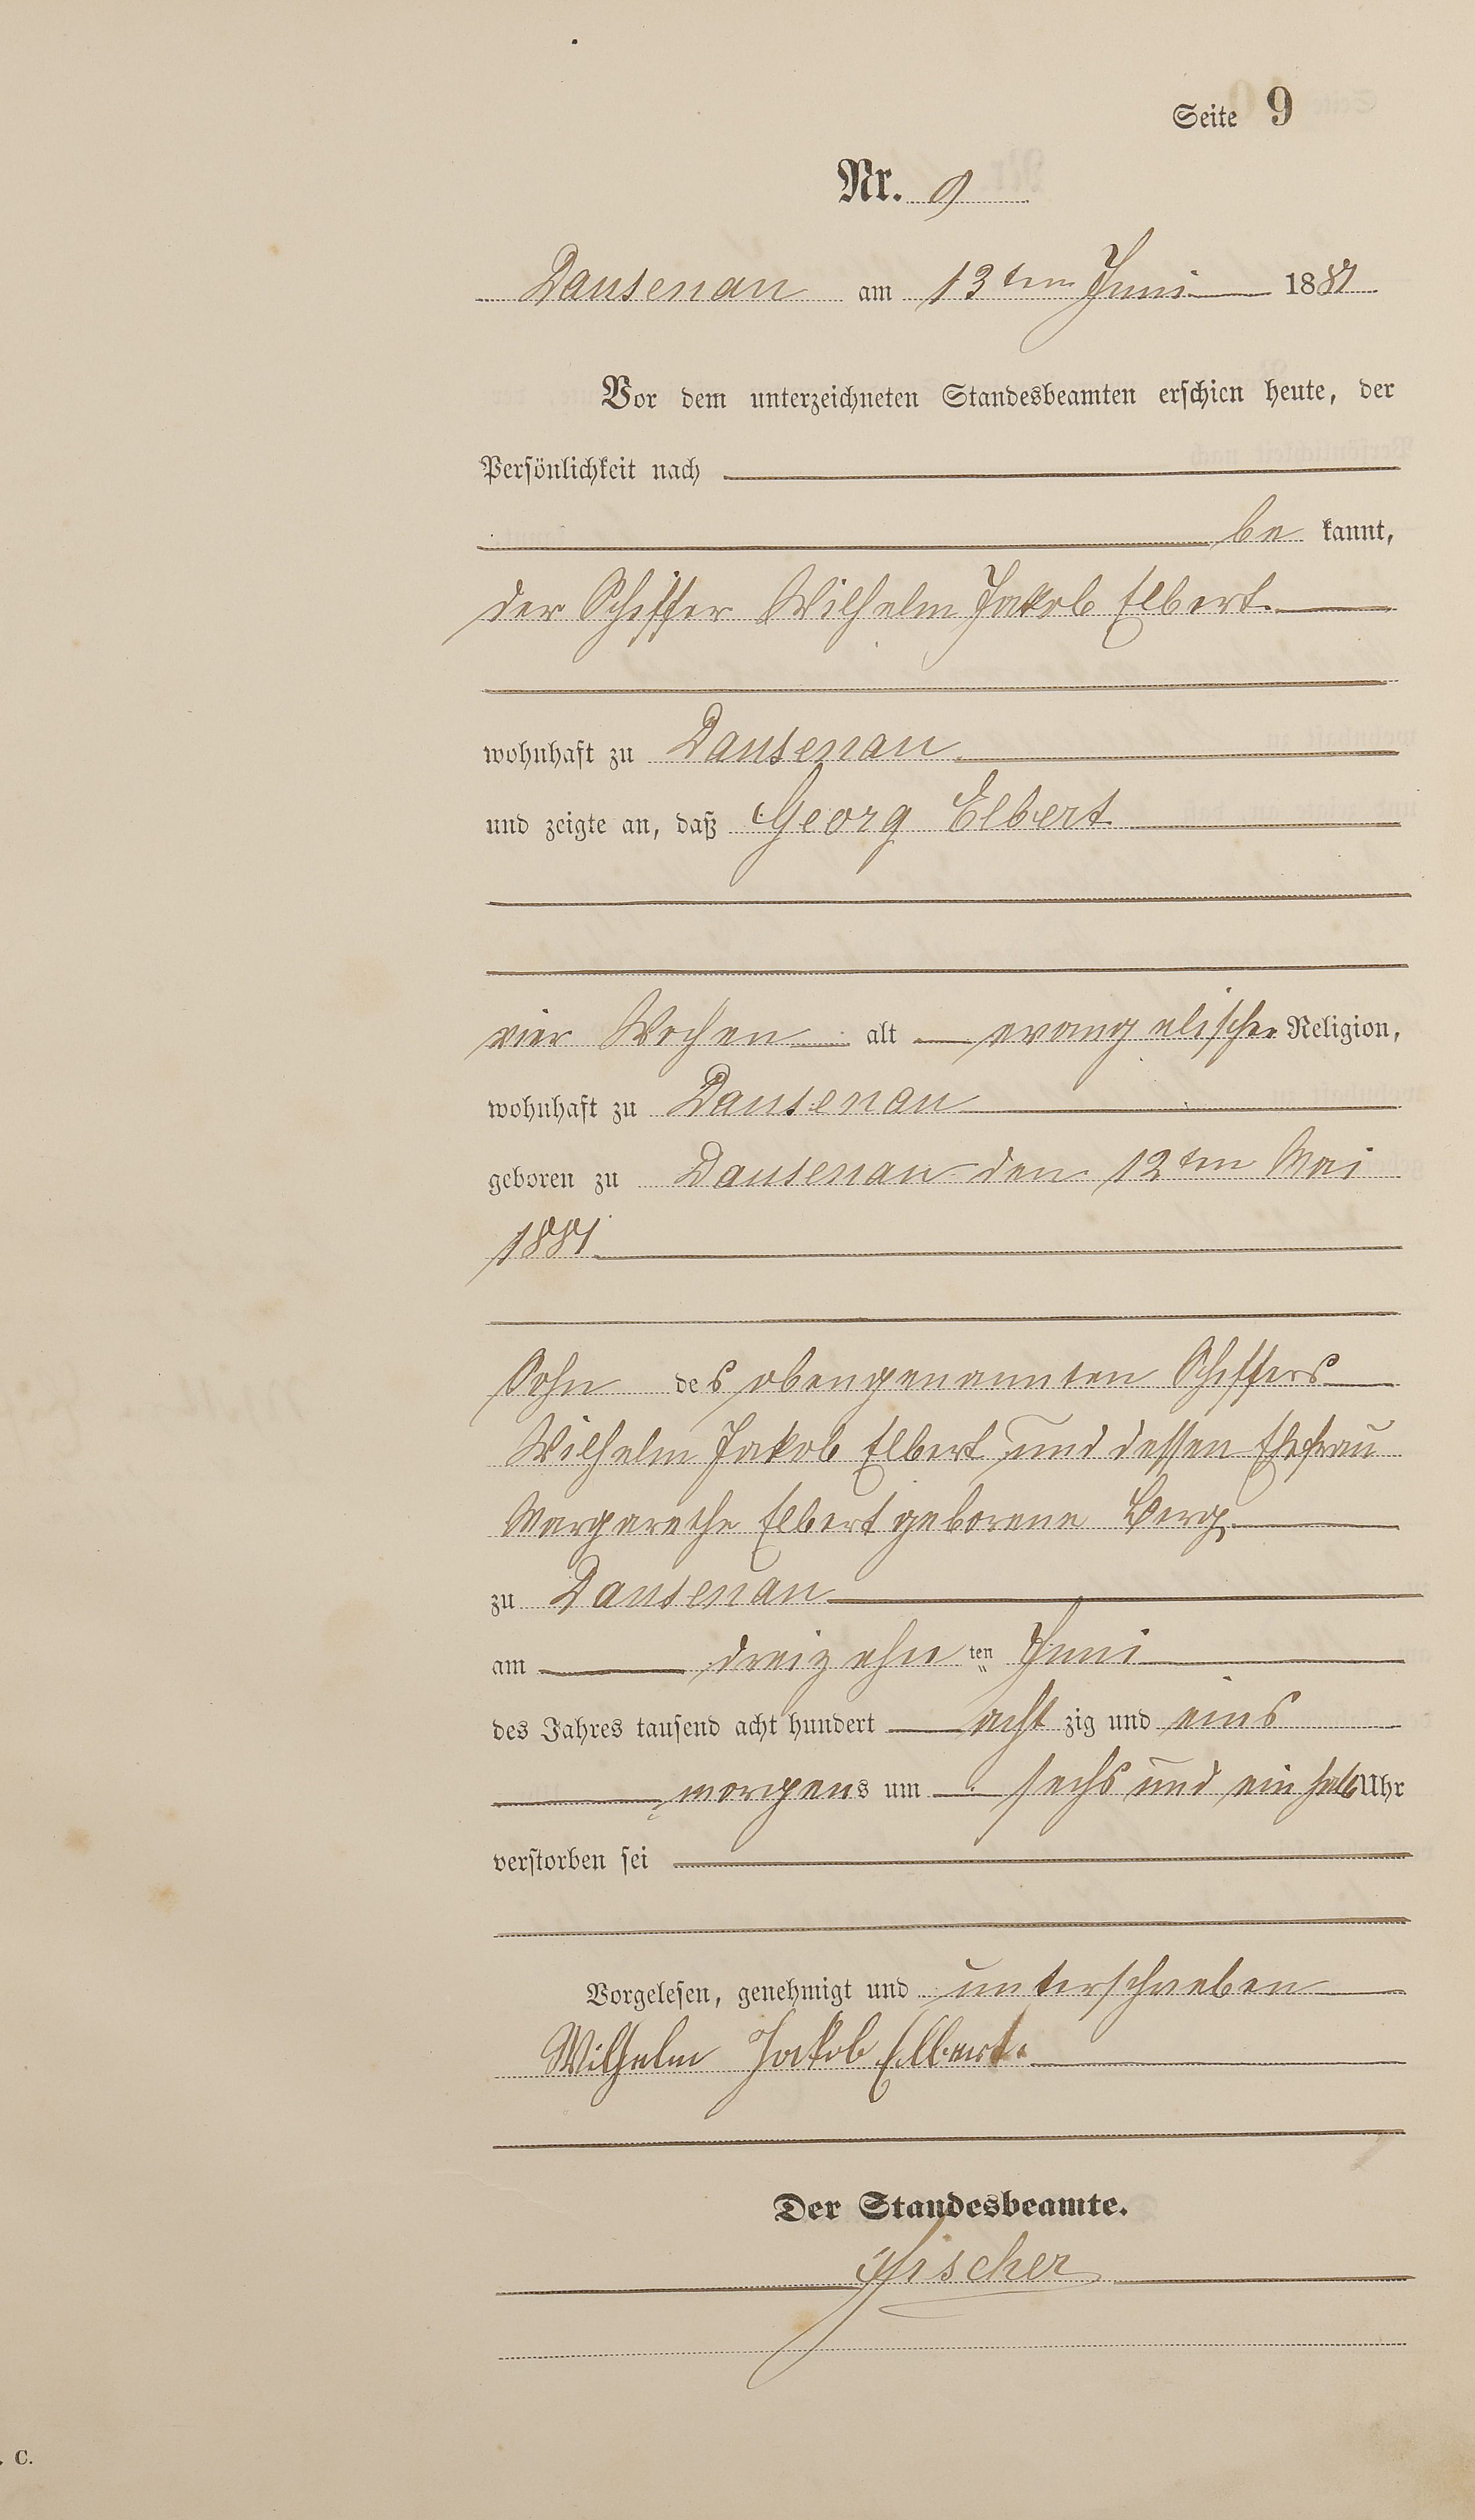 Seite 9
Nr. 9
Dausenau am 13ten Juni 1881
Vor dem unterzeichneten Standesbeamten erschien heute, der
Persönlichkeit nach
be kannt,
der Schiffer Wilhelm Jakob Elbert
wohnhaft zu Dausenau
und zeigte an, daß Georg Elbert
vier Wochen alt evangelischer Religion,
wohnhaft zu Dausenau
geboren zu Dausenau den 12ten Mai
1881
Sohn des obengenannten Schiffers
Wilhelm Jakob Elbert und dessen Ehefrau
Margarethe Elbert geborene Berg
zu Dausenau
am dreizehn ten Juni
des Jahres tausend acht hundert acht zig und eins
morgens um sechs und ein halb Uhr
verstorben sei
Vorgelesen, genehmigt und unterschrieben
Wilhelm Jakob Elbert.
Der Standesbeamte.
Fischer
. C.